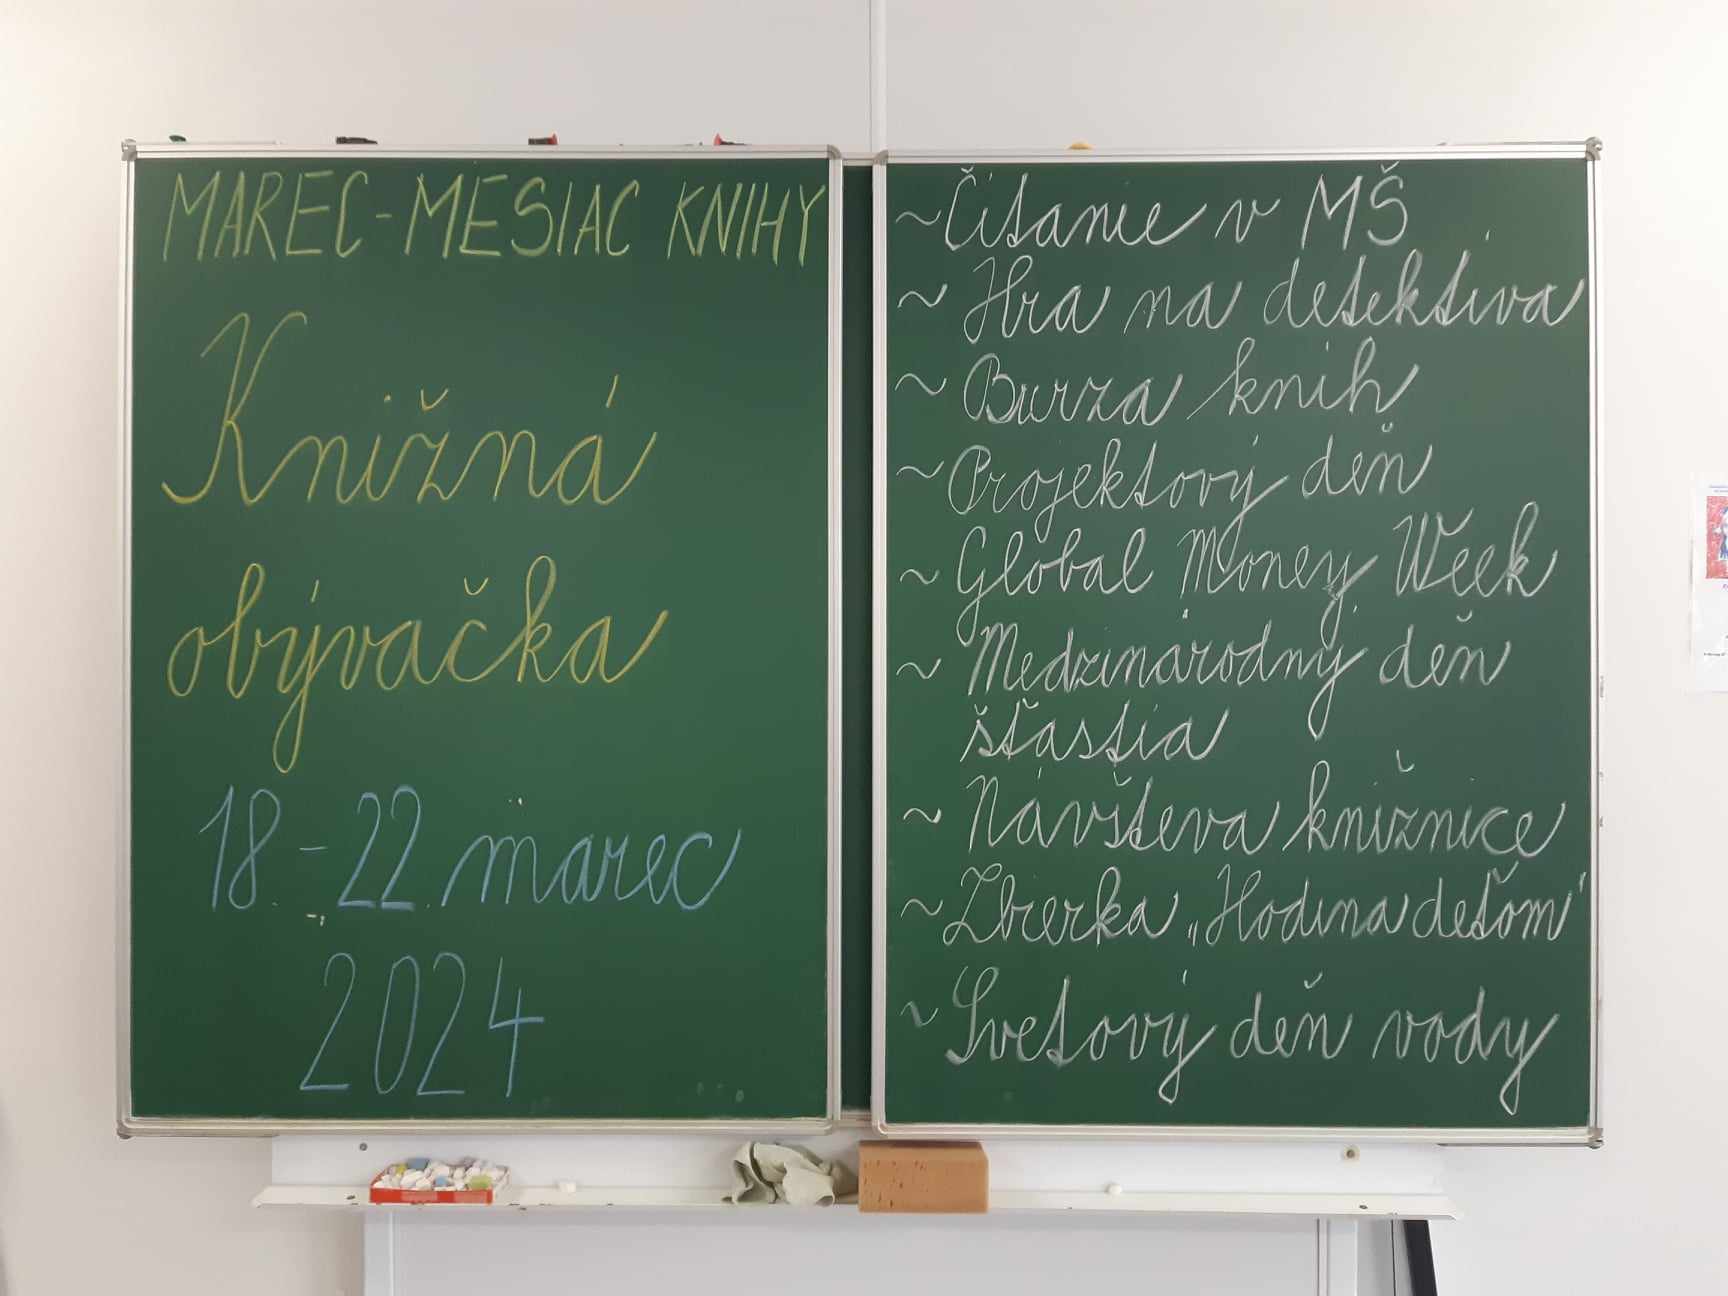 MAREC-MESIAC KNIHY
Knižná
obývačka
18.-22. marec
2024
~Čítanie v MŠ
~ Hra na detektíva
~ Burza kníh
~ Projektový deň
~ Global Money Week
~ Medzinárodný deň
šťastia
~ Návšteva knižnice
~ Zbierka "Hodina deťom"
~ Svetový deň vody